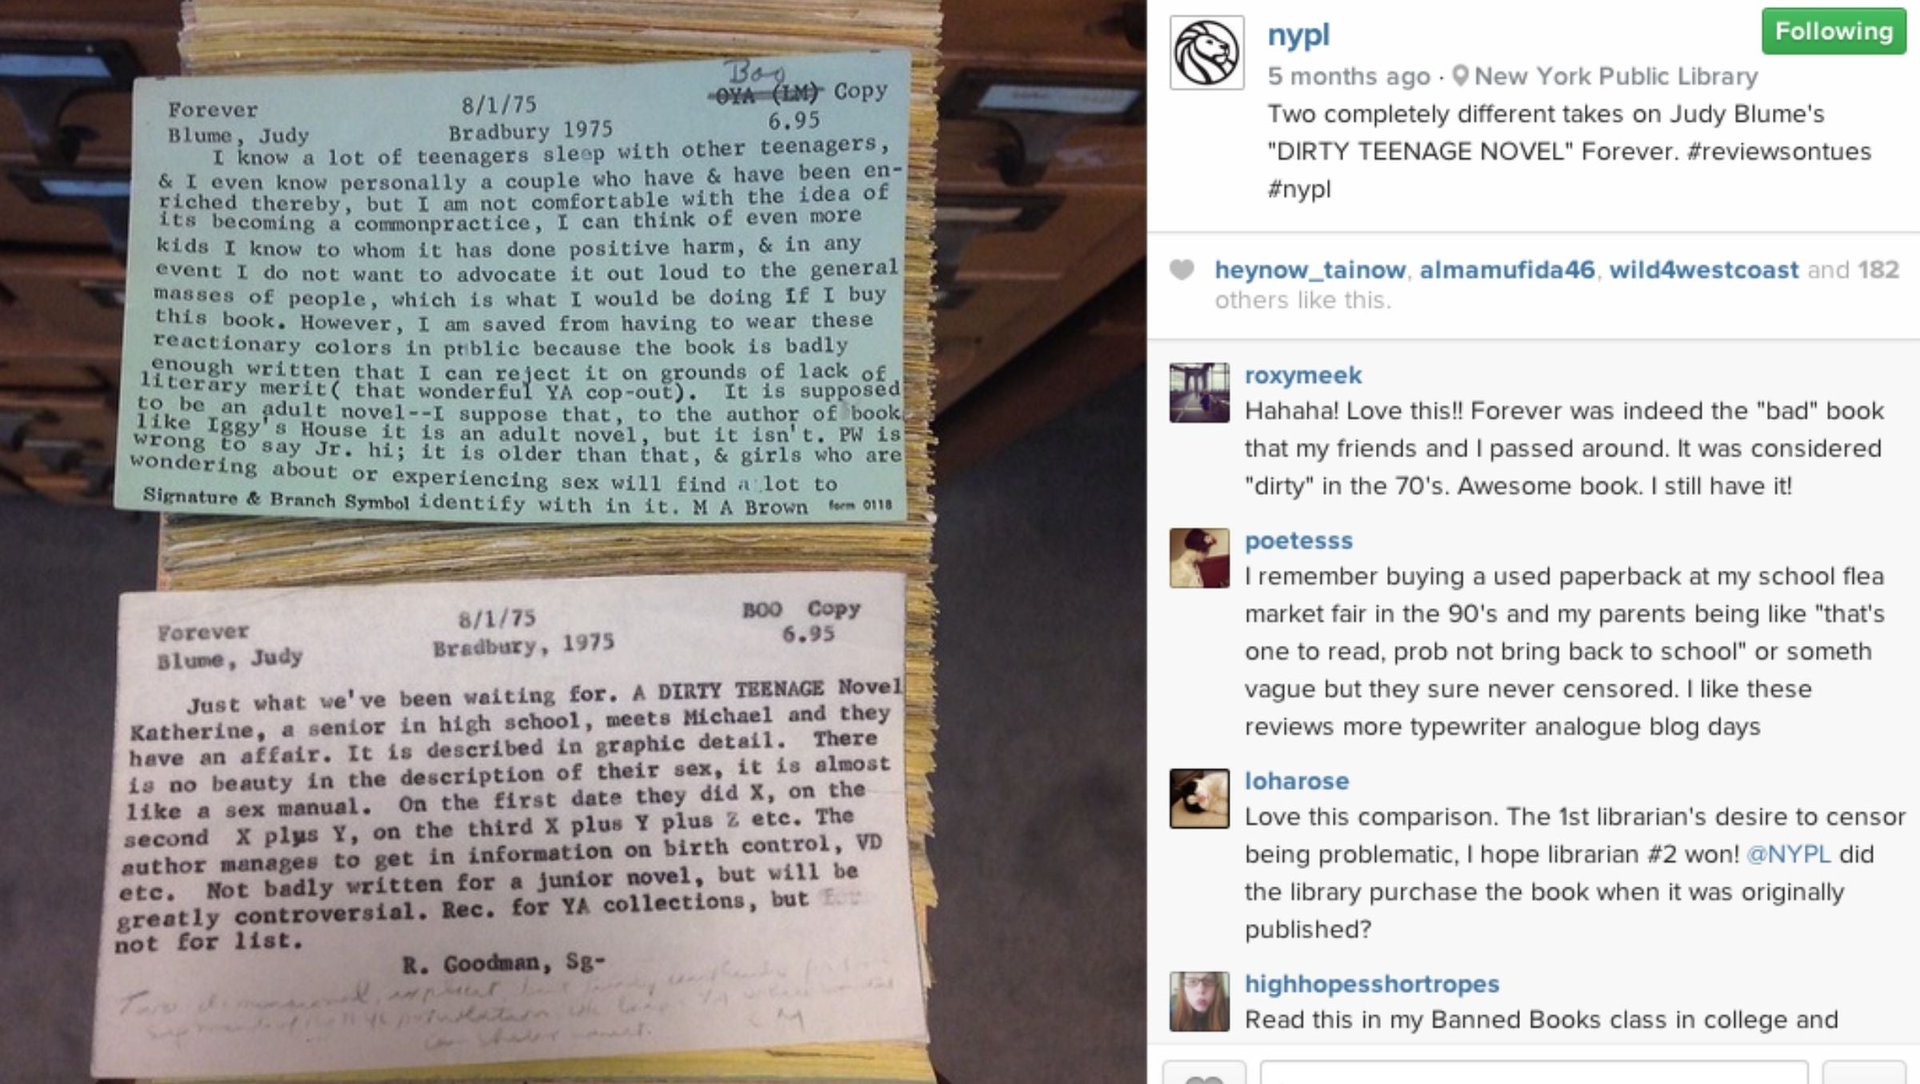 Boo
Forever 8/1/75 OYA (LM) Copy
Blume, Judy Bradbury 1975 6.95
I know a lot of teenagers sleep with other teenagers,
& I even know personally a couple who have & have been en-
riched thereby, but I am not comfortable with the idea of
its becoming a commonpractice, I can think of even more
kids I know to whom it has done positive harm, & in any
event I do not want to advocate it out loud to the general
masses of people, which is what I would be doing If I buy
this book. However, I am saved from having to wear these
reactionary colors in public because the book is badly
enough written that I can reject it on grounds of lack of
literary merit( that wonderful YA cop-out). It is supposed
to be an adult novel--I suppose that, to the author of book
like Iggy's House it is an adult novel, but it isn't. PW is
wrong to say Jr. hi; it is older than that, & girls who are
wondering about or experiencing sex will find a lot to
Signature & Branch Symbol identify with in it. M A Brown form 0118
Forever 8/1/75 BOO Copy
Blume, Judy Bradbury, 1975 6.95
Just what we've been waiting for. A DIRTY TEENAGE Novel
Katherine, a senior in high school, meets Michael and they
have an affair. It is described in graphic detail. There
is no beauty in the description of their sex, it is almost
like a sex manual. On the first date they did X, on the
second X plys Y, on the third X plus Y plus Z etc. The
author manages to get in information on birth control, VD
etc. Not badly written for a junior novel, but will be
greatly controversial. Rec. for YA collections, but
not for list.
R. Goodman, Sg-
nypl
Following
5 months ago · New York Public Library
Two completely different takes on Judy Blume's
"DIRTY TEENAGE NOVEL" Forever. #reviewsontues
#nypl
heynow_tainow, almamufida46, wild4westcoast and 182
others like this.
roxymeek
Hahaha! Love this!! Forever was indeed the "bad" book
that my friends and I passed around. It was considered
"dirty" in the 70's. Awesome book. I still have it!
poetesss
I remember buying a used paperback at my school flea
market fair in the 90's and my parents being like "that's
one to read, prob not bring back to school" or someth
vague but they sure never censored. I like these
reviews more typewriter analogue blog days
loharose
Love this comparison. The 1st librarian's desire to censor
being problematic, I hope librarian #2 won! @NYPL did
the library purchase the book when it was originally
published?
highhopesshortropes
Read this in my Banned Books class in college and